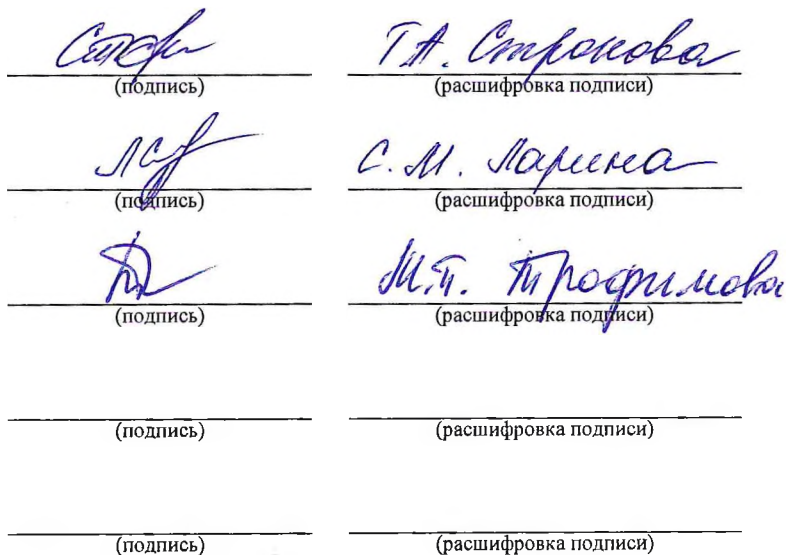 Т.А. Стронова
(подпись) (расшифровка подписи)
С.М. Ларина
(подпись) (расшифровка подписи)
М.П. Трофимова
(подпись) (расшифровка подписи)
(подпись) (расшифровка подписи)
(подпись) (расшифровка подписи)